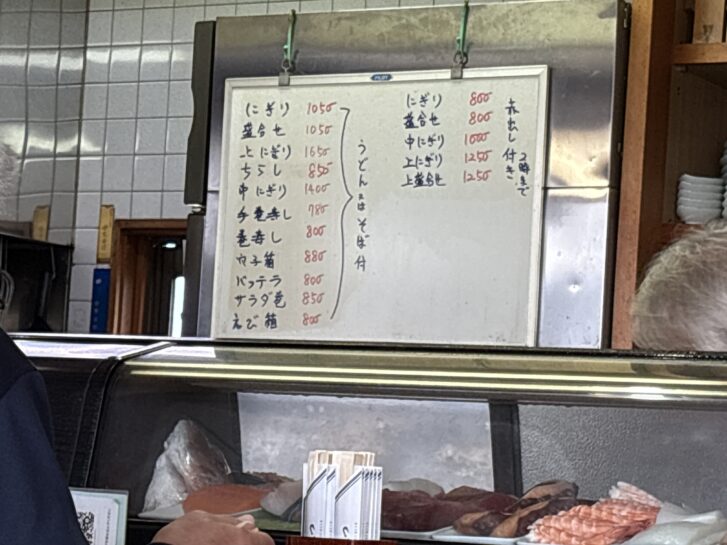 にぎり 1050
盛合せ 1050
上にぎり 1650
ちらし 850
中にぎり 1400
手巻寿し 780
巻寿し 800
穴子箱 880
バッテラ 800
サラダ巻 850
えび箱 800
うどん又はそば付
にぎり 800
盛合せ 800
中にぎり 1000
上にぎり 1250
上盛合せ 1250
赤出し付き
2時まで